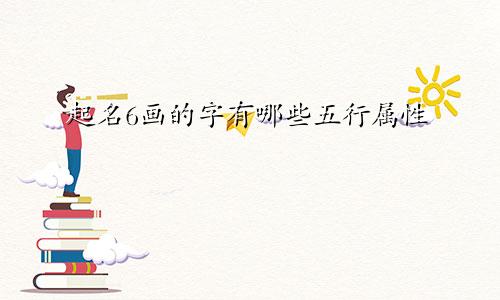 起名6画的字有哪些五行属性